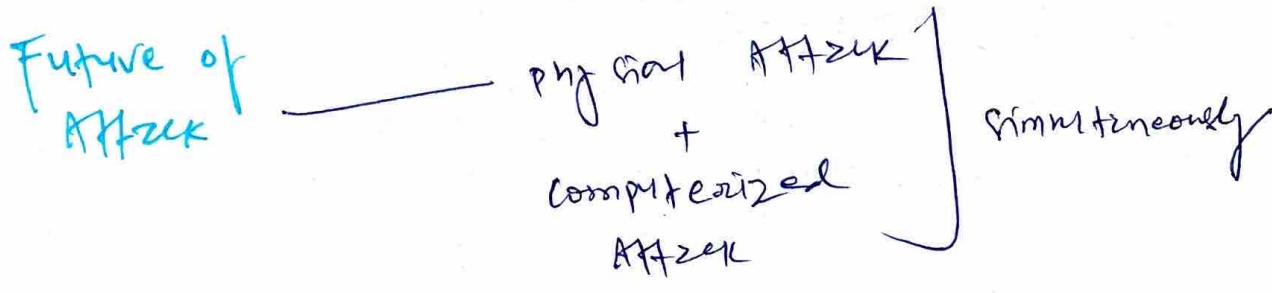 Future of
Attack
physical Attack
+
computerized
Attack
simultaneously